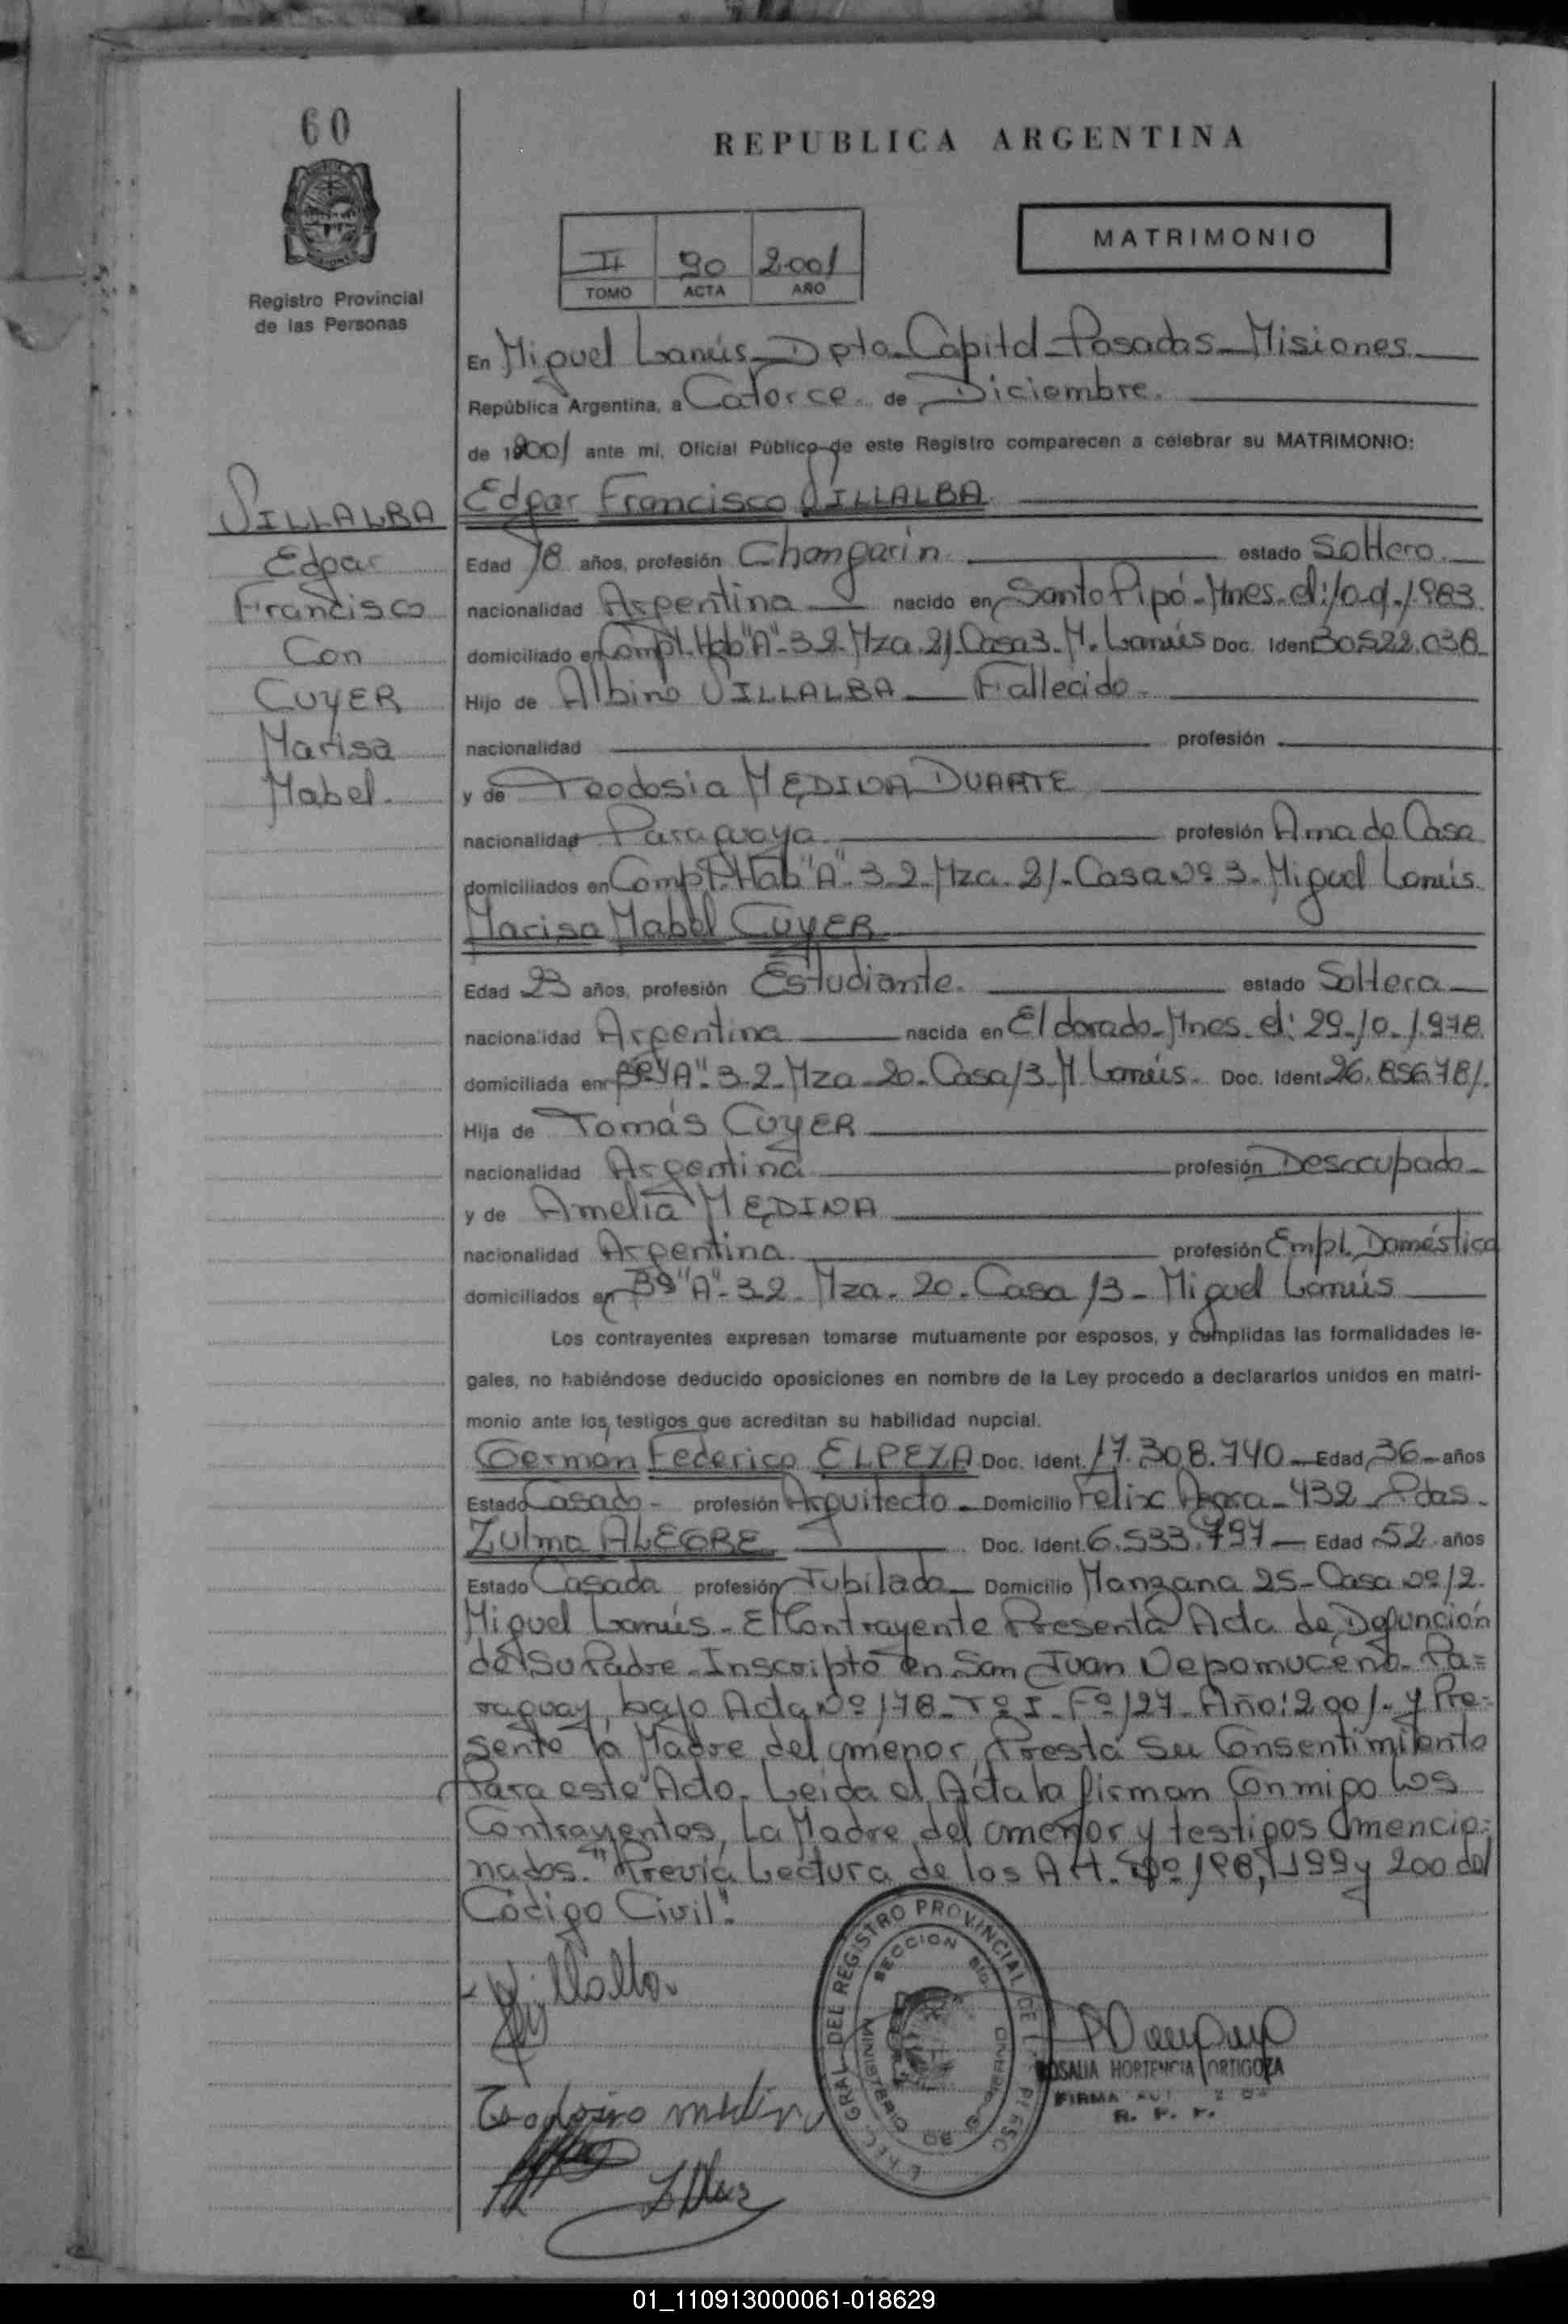 60
REPUBLICA ARGENTINA
MATRIMONIO
II 90 2001
TOMO ACTA AÑO
Registro Provincial
de las Personas
En Miguel Lanús Dpto Capital Posadas Misiones
República Argentina, a Catorce de Diciembre
de 2001 ante mi, Oficial Público de este Registro comparecen a celebrar su MATRIMONIO:
Edgar Francisco VILLALBA
VILLALBA
Edgar
Francisco
Con
CUYER
Marisa
Mabel
Edad 18 años, profesión Changarin estado Soltero
nacionalidad Argentina nacido en Santo Pipó - Mnes. el: 10-9-1983
domiciliado en Compl. Hab "A" - 3-2. Mza. 21 Casa 3 - M. Lanús Doc. Iden 30.522.038
Hijo de Albino VILLALBA Fallecido
nacionalidad profesión
y de Teodosia MEDINA DUARTE
nacionalidad Paraguaya profesión Ama de Casa
domiciliados en Compl. Hab "A" - 3-2 - Mza. 21 - Casa Nº 3 - Miguel Lanús
Marisa Mabel CUYER
Edad 23 años, profesión Estudiante estado Soltera
nacionalidad Argentina nacida en Eldorado - Mnes. el: 29-10-1978
domiciliada en Bº "A" - 3-2 - Mza 20 - Casa 13 - M Lanús Doc. Ident 26.856.781
Hija de Tomás CUYER
nacionalidad Argentina profesión Desocupado
y de Amelia MEDINA
nacionalidad Argentina profesión Empl. Doméstica
domiciliados en Bº "A" - 3-2 - Mza. 20 - Casa 13 - Miguel Lanús
Los contrayentes expresan tomarse mutuamente por esposos, y cumplidas las formalidades le-
gales, no habiéndose deducido oposiciones en nombre de la Ley procedo a declararlos unidos en matri-
monio ante los testigos que acreditan su habilidad nupcial.
German Federico ELPEZA Doc. Ident. 17.308.740 Edad 36 años
Estado Casado profesión Arquitecto Domicilio Felix 432 Pdas.
Zulma ALEGRE Doc. Ident. 6.533.797 Edad 52 años
Estado Casada profesión Jubilada Domicilio Manzana 25 - Casa Nº 12
Miguel Lanús - El Contrayente Presenta Acta de Defunción
de Su Padre - Inscripto en San Juan Nepomuceno - Pa=
raguay, bajo Acta Nº 178 - Tº I - Fº 127 - Año: 2001. y Pre=
sente la Madre del menor, Presta Su Consentimiento
Para este Acto. Leida el Acta la firman Conmigo Los
Contrayentes, La Madre del menor y testigos mencio=
nados. "Previa Lectura de los Art. Nº 198, 199 y 200 del
Código Civil".
Villalba
ROSALIA HORTENCIA ORTIGOZA
FIRMA
R. P. P.
GRAL. DEL REGISTRO PROVINCIAL DE
SECCION
MINISTERIO DE
01_110913000061-018629